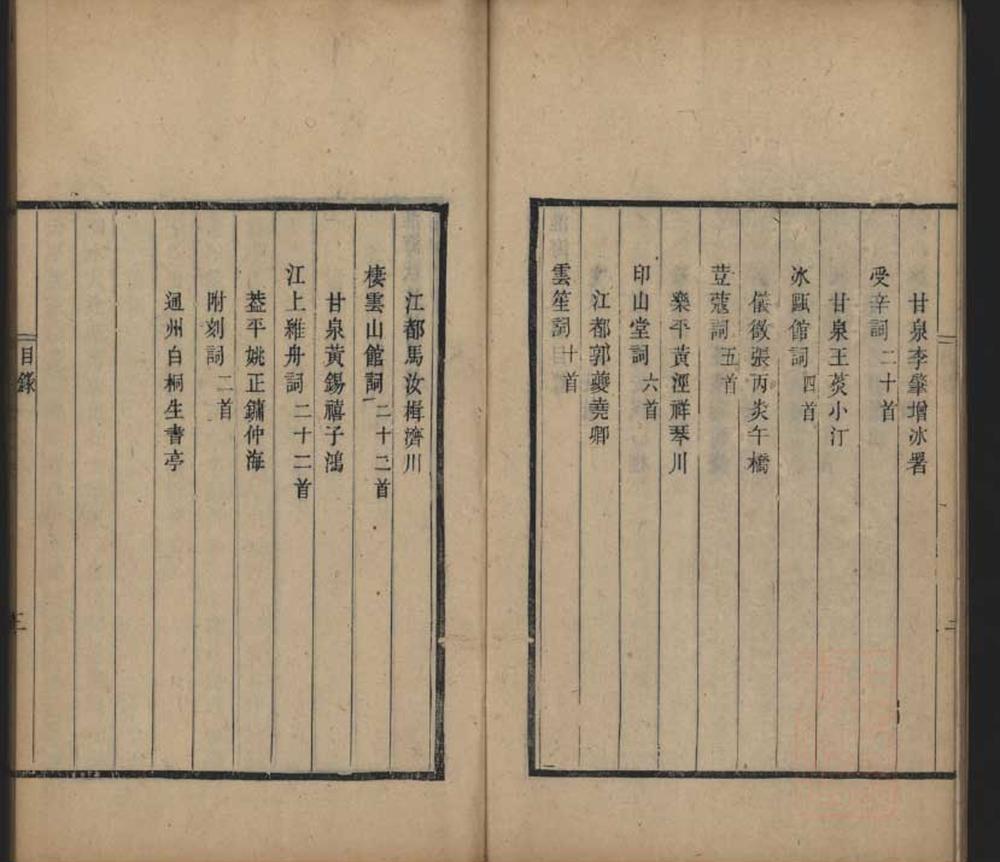 甘泉李肇增冰署
受辛詞二十首
甘泉王菼小汀
冰甌館詞四首
儀徵張丙炎午橋
荳蔻詞五首
樂平黃涇祥琴川
印山堂詞六首
江都郭夔堯卿
雲笙詞十首
江都馬汝楫濟川
棲雲山館詞二十二首
甘泉黃錫禧子鴻
江上維舟詞二十二首
葢平姚正鏞仲海
附刻詞二首
通州白桐生書亭
目錄
三